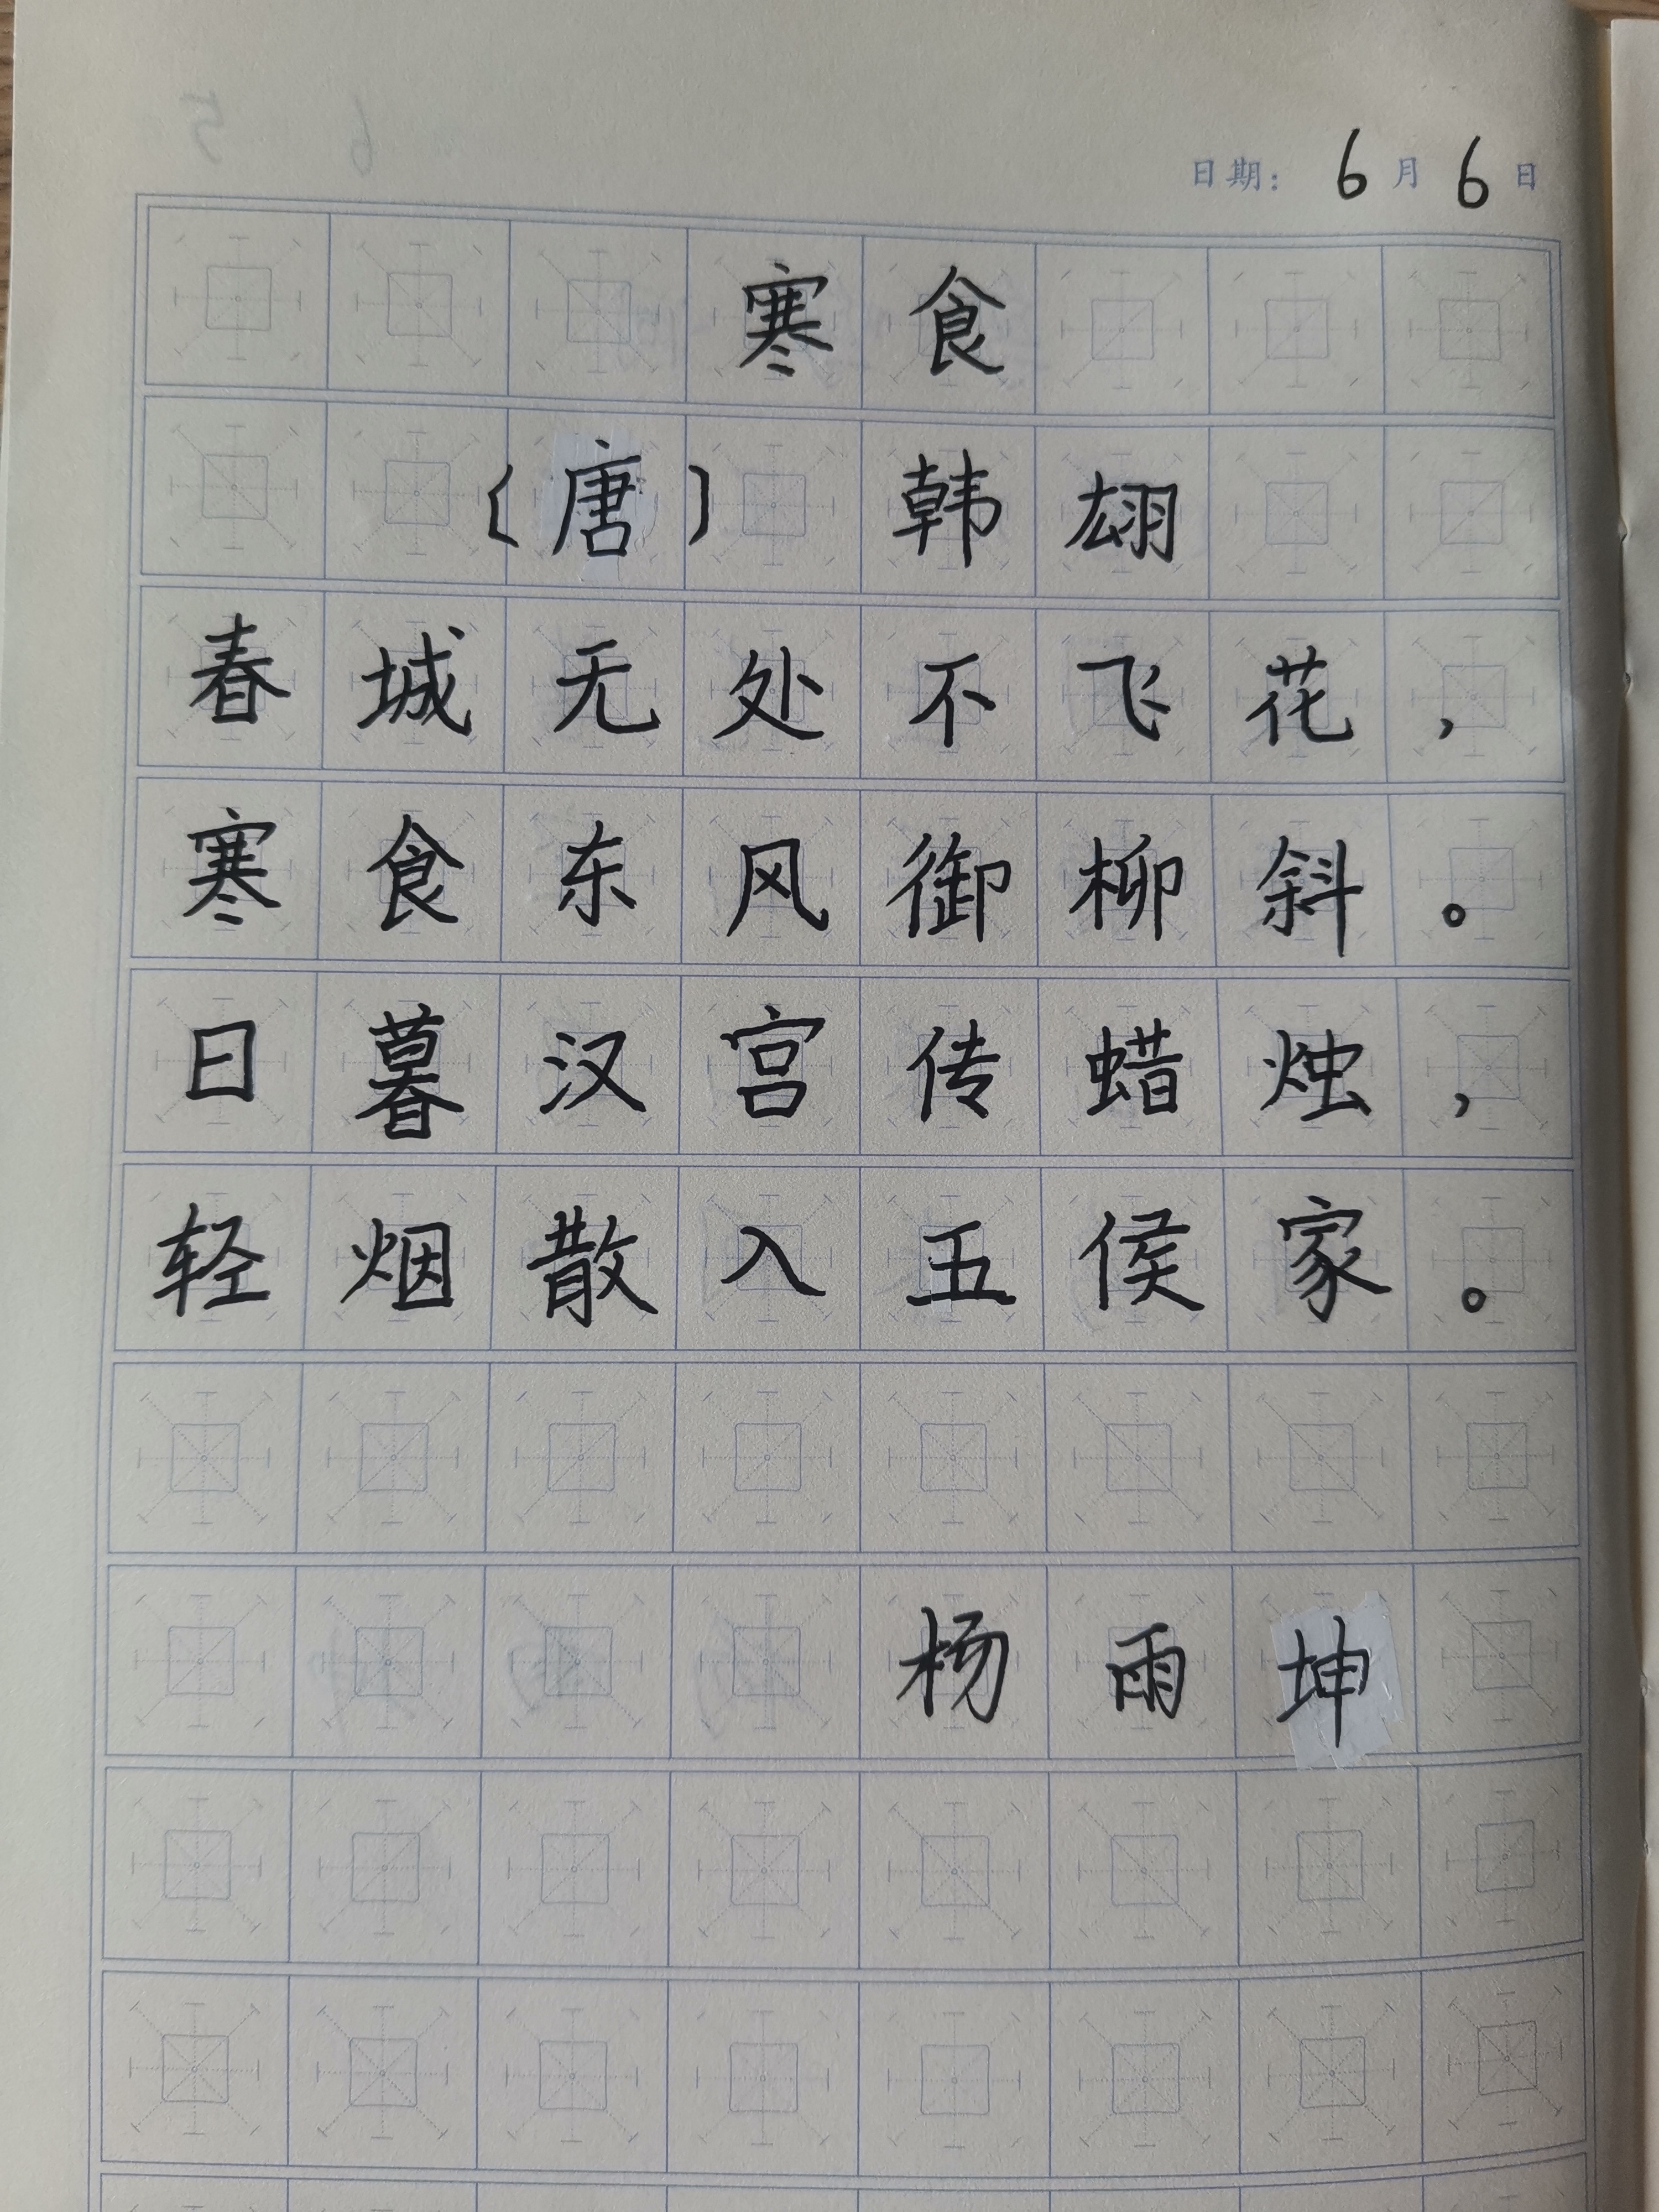 日期： 6 月 6 日
寒食
〔唐〕 韩翃
春城无处不飞花，
寒食东风御柳斜。
日暮汉宫传蜡烛，
轻烟散入五侯家。
杨雨坤